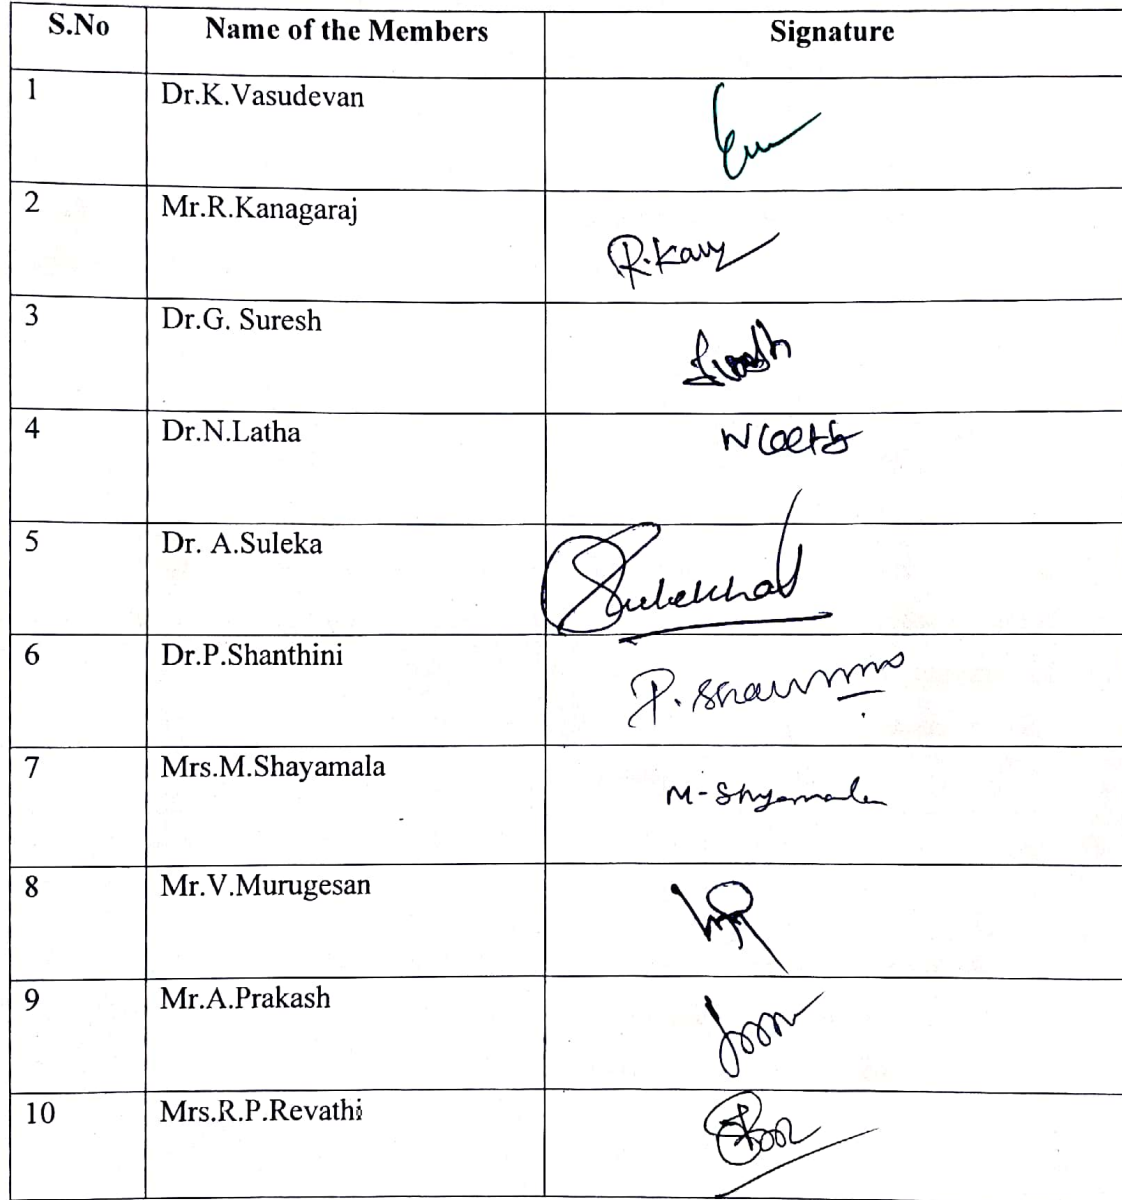 S.No Name of the Members Signature
1 Dr.K.Vasudevan
2 Mr.R.Kanagaraj
R.Kang
3 Dr.G. Suresh
Suresh
4 Dr.N.Latha
N Latha
5 Dr. A.Suleka
Sulekha
6 Dr.P.Shanthini
7 Mrs.M.Shayamala
M-Shyamala
8 Mr.V.Murugesan
9 Mr.A.Prakash
10 Mrs.R.P.Revathi